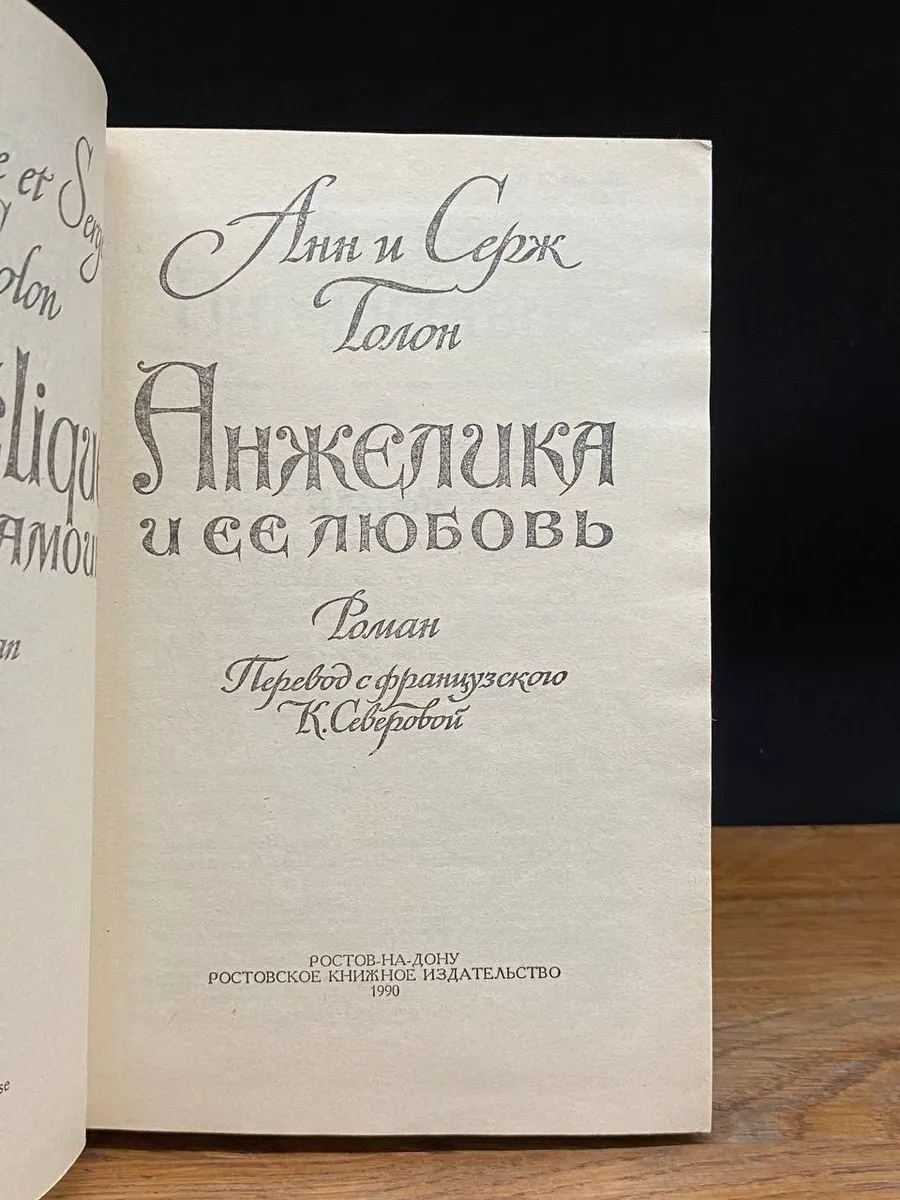 et Serge
olon
élique
amour
Анн и Серж
Голон
Анжелика
и ее любовь
Роман
Перевод с французского
К. Северовой
РОСТОВ-НА-ДОНУ
РОСТОВСКОЕ КНИЖНОЕ ИЗДАТЕЛЬСТВО
1990